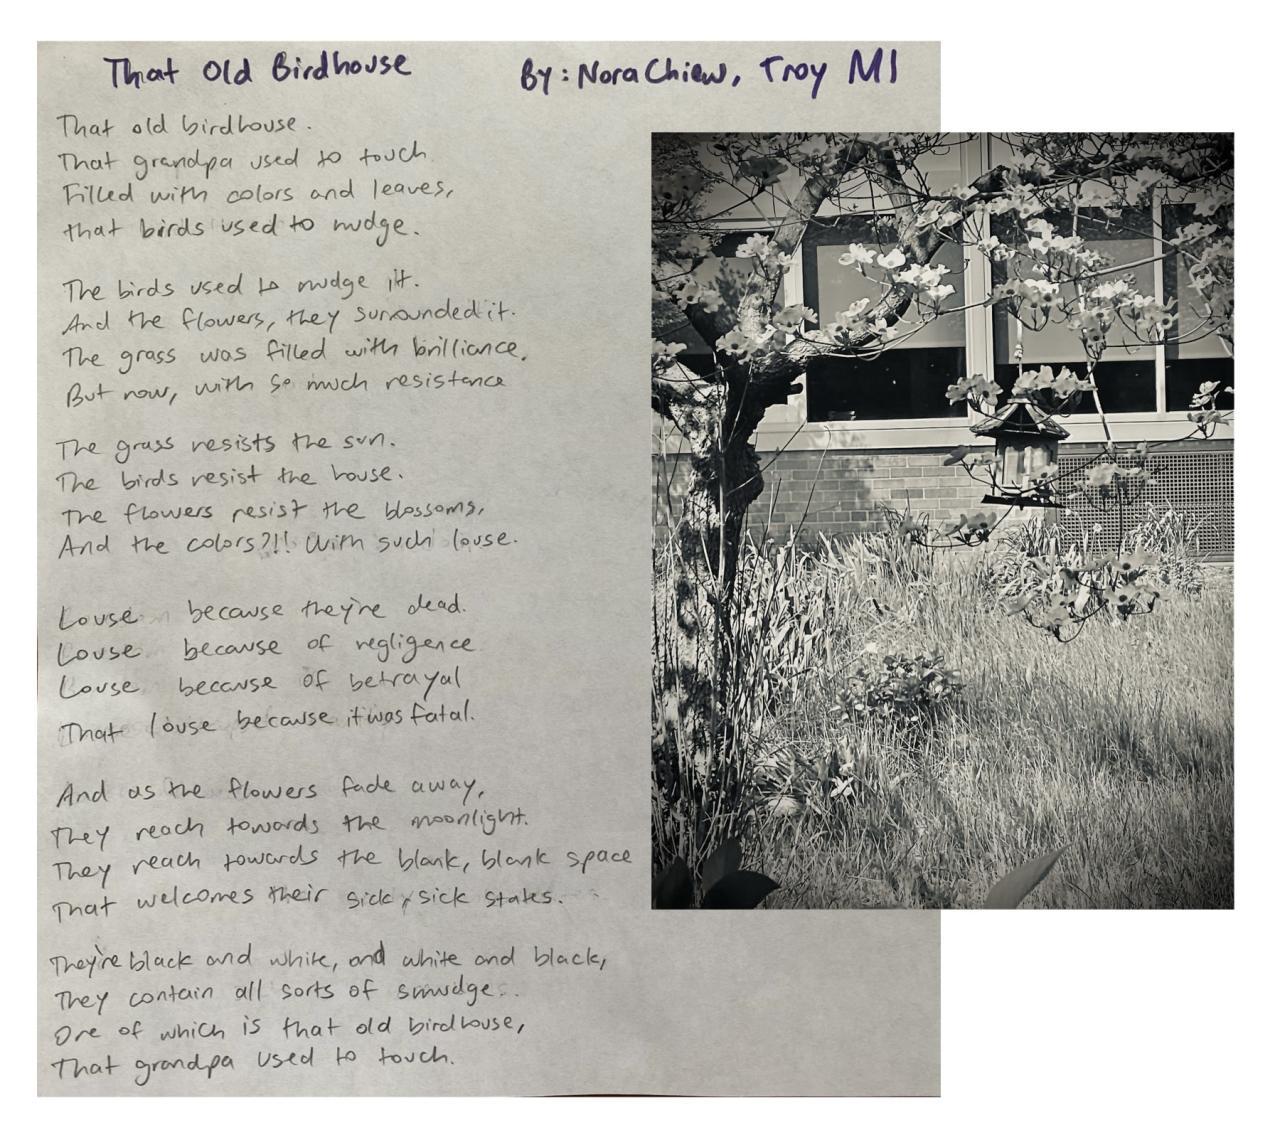 That Old Birdhouse
By: Nora Chiew, Troy MI
That old birdhouse.
That grandpa used to touch
Filled with colors and leaves,
that birds used to nudge.
The birds used to nudge it.
And the flowers, they surrounded it.
The grass was filled with brilliance,
But now, with so much resistance
The grass resists the sun.
The birds resist the house.
The flowers resist the blossoms,
And the colors?!! With such louse.
Louse because they're dead.
Louse because of negligence
Louse because of betrayal
That louse because it was fatal.
And as the flowers fade away,
They reach towards the moonlight.
They reach towards the blank, blank space
That welcomes their sick, sick states.
They're black and white, and white and black,
They contain all sorts of smudge..
One of which is that old birdhouse,
That grandpa used to touch.